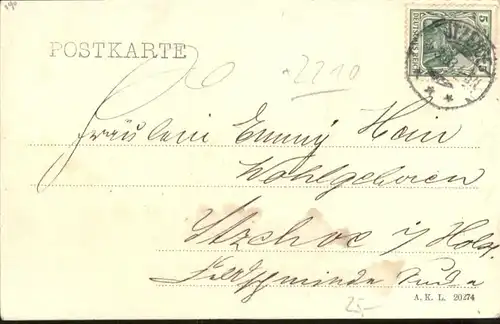 POSTKARTE
2210
Fräulein Emmy Hein
Wohlgeboren
Itzehoe i/ Holst.
A. K. L. 20274
25,-